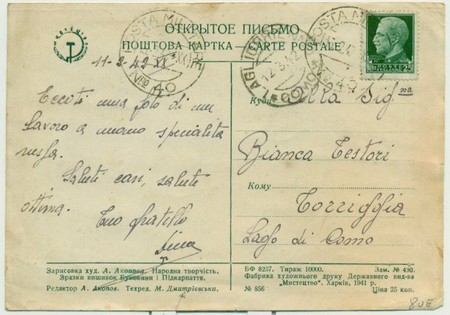 ОТКРЫТОЕ ПИСЬМО
ПОШТОВА КАРТКА — CARTE POSTALE
POSTA MILITARE
N° 40
11-2-42 XX
Eccoti una foto di un
lavoro a mano specialità
russa.
Saluti cari, salute
ottima.
Tuo fratello
Куда
Alla Sig.na
Bianca Testori
Кому
Torriggia
Lago di Como
Зарисовка худ. А. Акопова. Народна творчість.
Зразки вишивок Буковини і Підкарпаття.
Редактор А. Акопов. Техред. М. Дмитрієвська.
БФ 8257. Тираж 10000. Зам. № 490.
Фабрика художнього друку Державного вид-ва
„Мистецтво“. Харків, 1941 р.
№ 656 Ціна 25 коп.